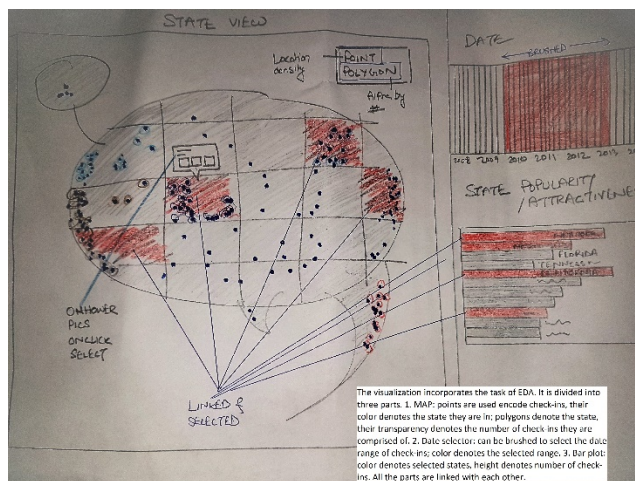 STATE VIEW
Location
density
POINT
POLYGON
#
DATE
BRUSHED
2008 2009 2010 2011 2012 2013
STATE POPULARITY
/ATTRACTIVENE
FLORIDA
TENNESSE
ONHOVER
PICS
ONCLICK
SELECT
LINKED &
SELECTED
The visualization incorporates the task of EDA. It is divided into
three parts. 1. MAP: points are used encode check-ins, their
color denotes the state they are in; polygons denote the state,
their transparency denotes the number of check-ins they are
comprised of. 2. Date selector: can be brushed to select the date
range of check-ins; color denotes the selected range. 3. Bar plot:
color denotes selected states, height denotes number of check-
ins. All the parts are linked with each other.